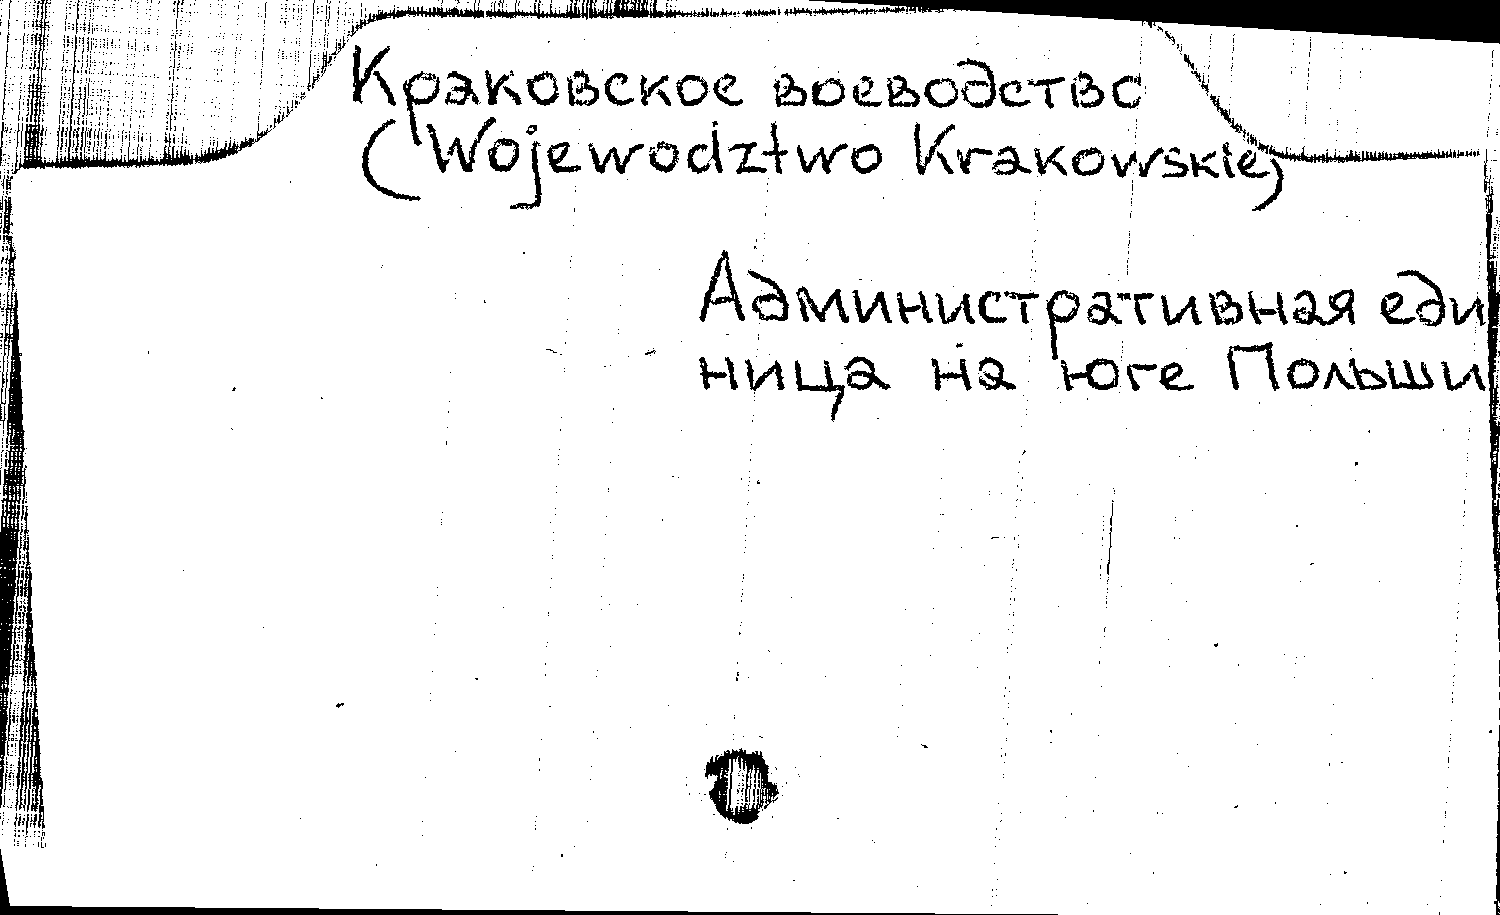 Краковское воеводство
(Wojewodztwo Krakowskie)
Административная еди
ница на юге Польши